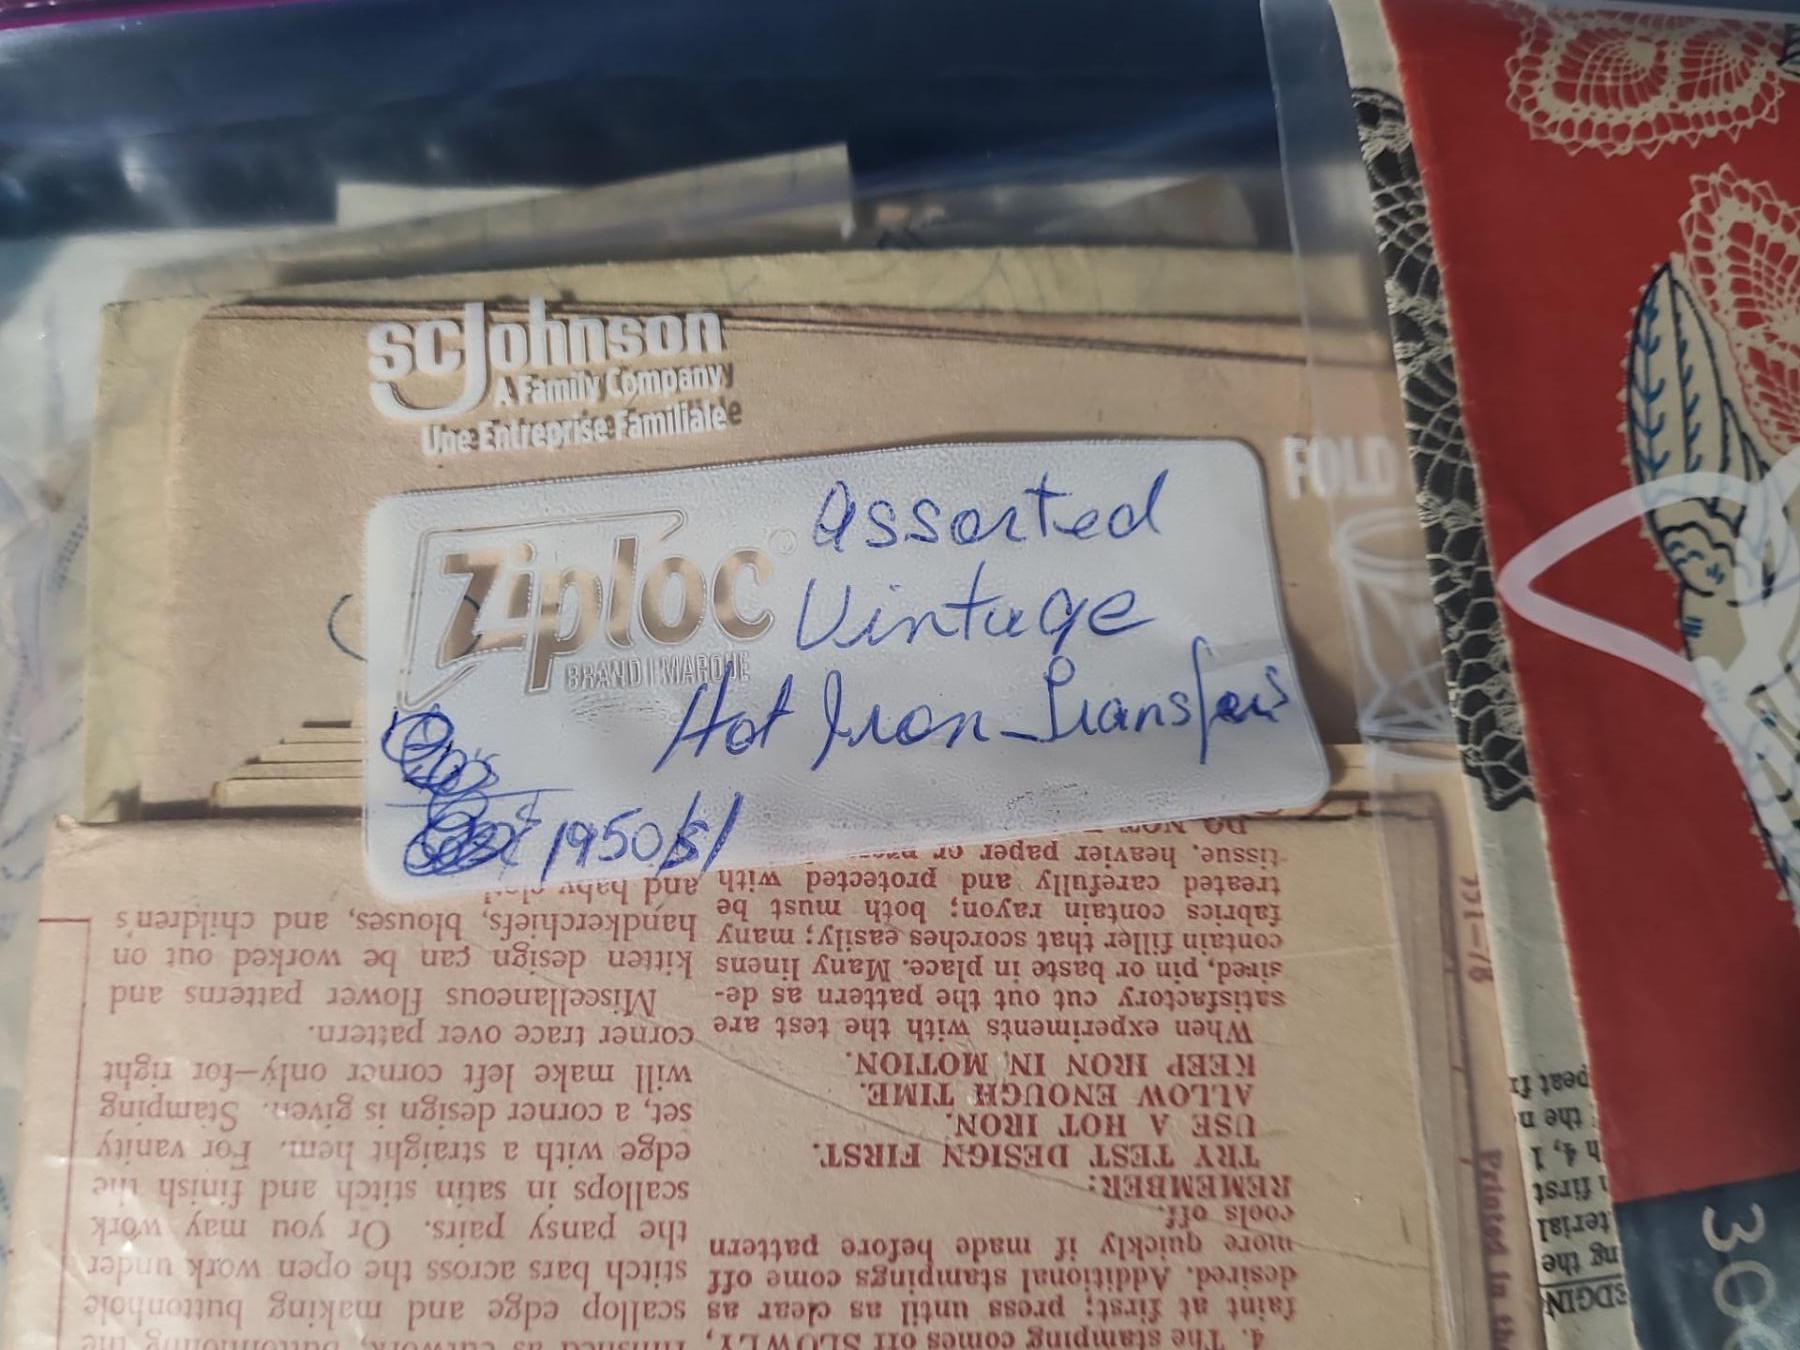 scJohnson
A Family Company
Une Entreprise Familiale
FOLD
Ziploc®
BRAND | MARQUE
Assorted
Vintage
Hot Iron Transfers
1950/s/
4. The stamping comes off SLOWLY,
faint at first; press until as clear as
desired. Additional stampings come off
more quickly if made before pattern
cools off.
REMEMBER:
TRY TEST DESIGN FIRST.
USE A HOT IRON.
ALLOW ENOUGH TIME.
KEEP IRON IN MOTION.
When experiments with the test are
satisfactory cut out the pattern as de-
sired, pin or baste in place. Many linens
contain filler that scorches easily; many
fabrics contain rayon; both must be
treated carefully and protected with
tissue, heavier paper or
DO NOT
finished as cutwork, buttonholing the
scallop edge and making buttonhole
stitch bars across the open work under
the pansy pairs. Or you may work
scallops in satin stitch and finish the
edge with a straight hem. For vanity
set, a corner design is given. Stamping
will make left corner only—for right
corner trace over pattern.
Miscellaneous flower patterns and
kitten design can be worked out on
handkerchiefs, blouses, and children's
and baby
Printed in
EDGIN
ng the
terial
first
h 4, 1
the
peat